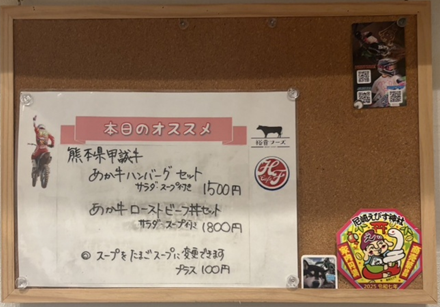 本日のオススメ
熊本県甲誠牛
あか牛ハンバーグセット
サラダ・スープ付き 1500円
あか牛ローストビーフ丼セット
サラダ・スープ付き 1800円
◎ スープをたまごスープに変更できます
プラス 100円
尼崎えびす神社